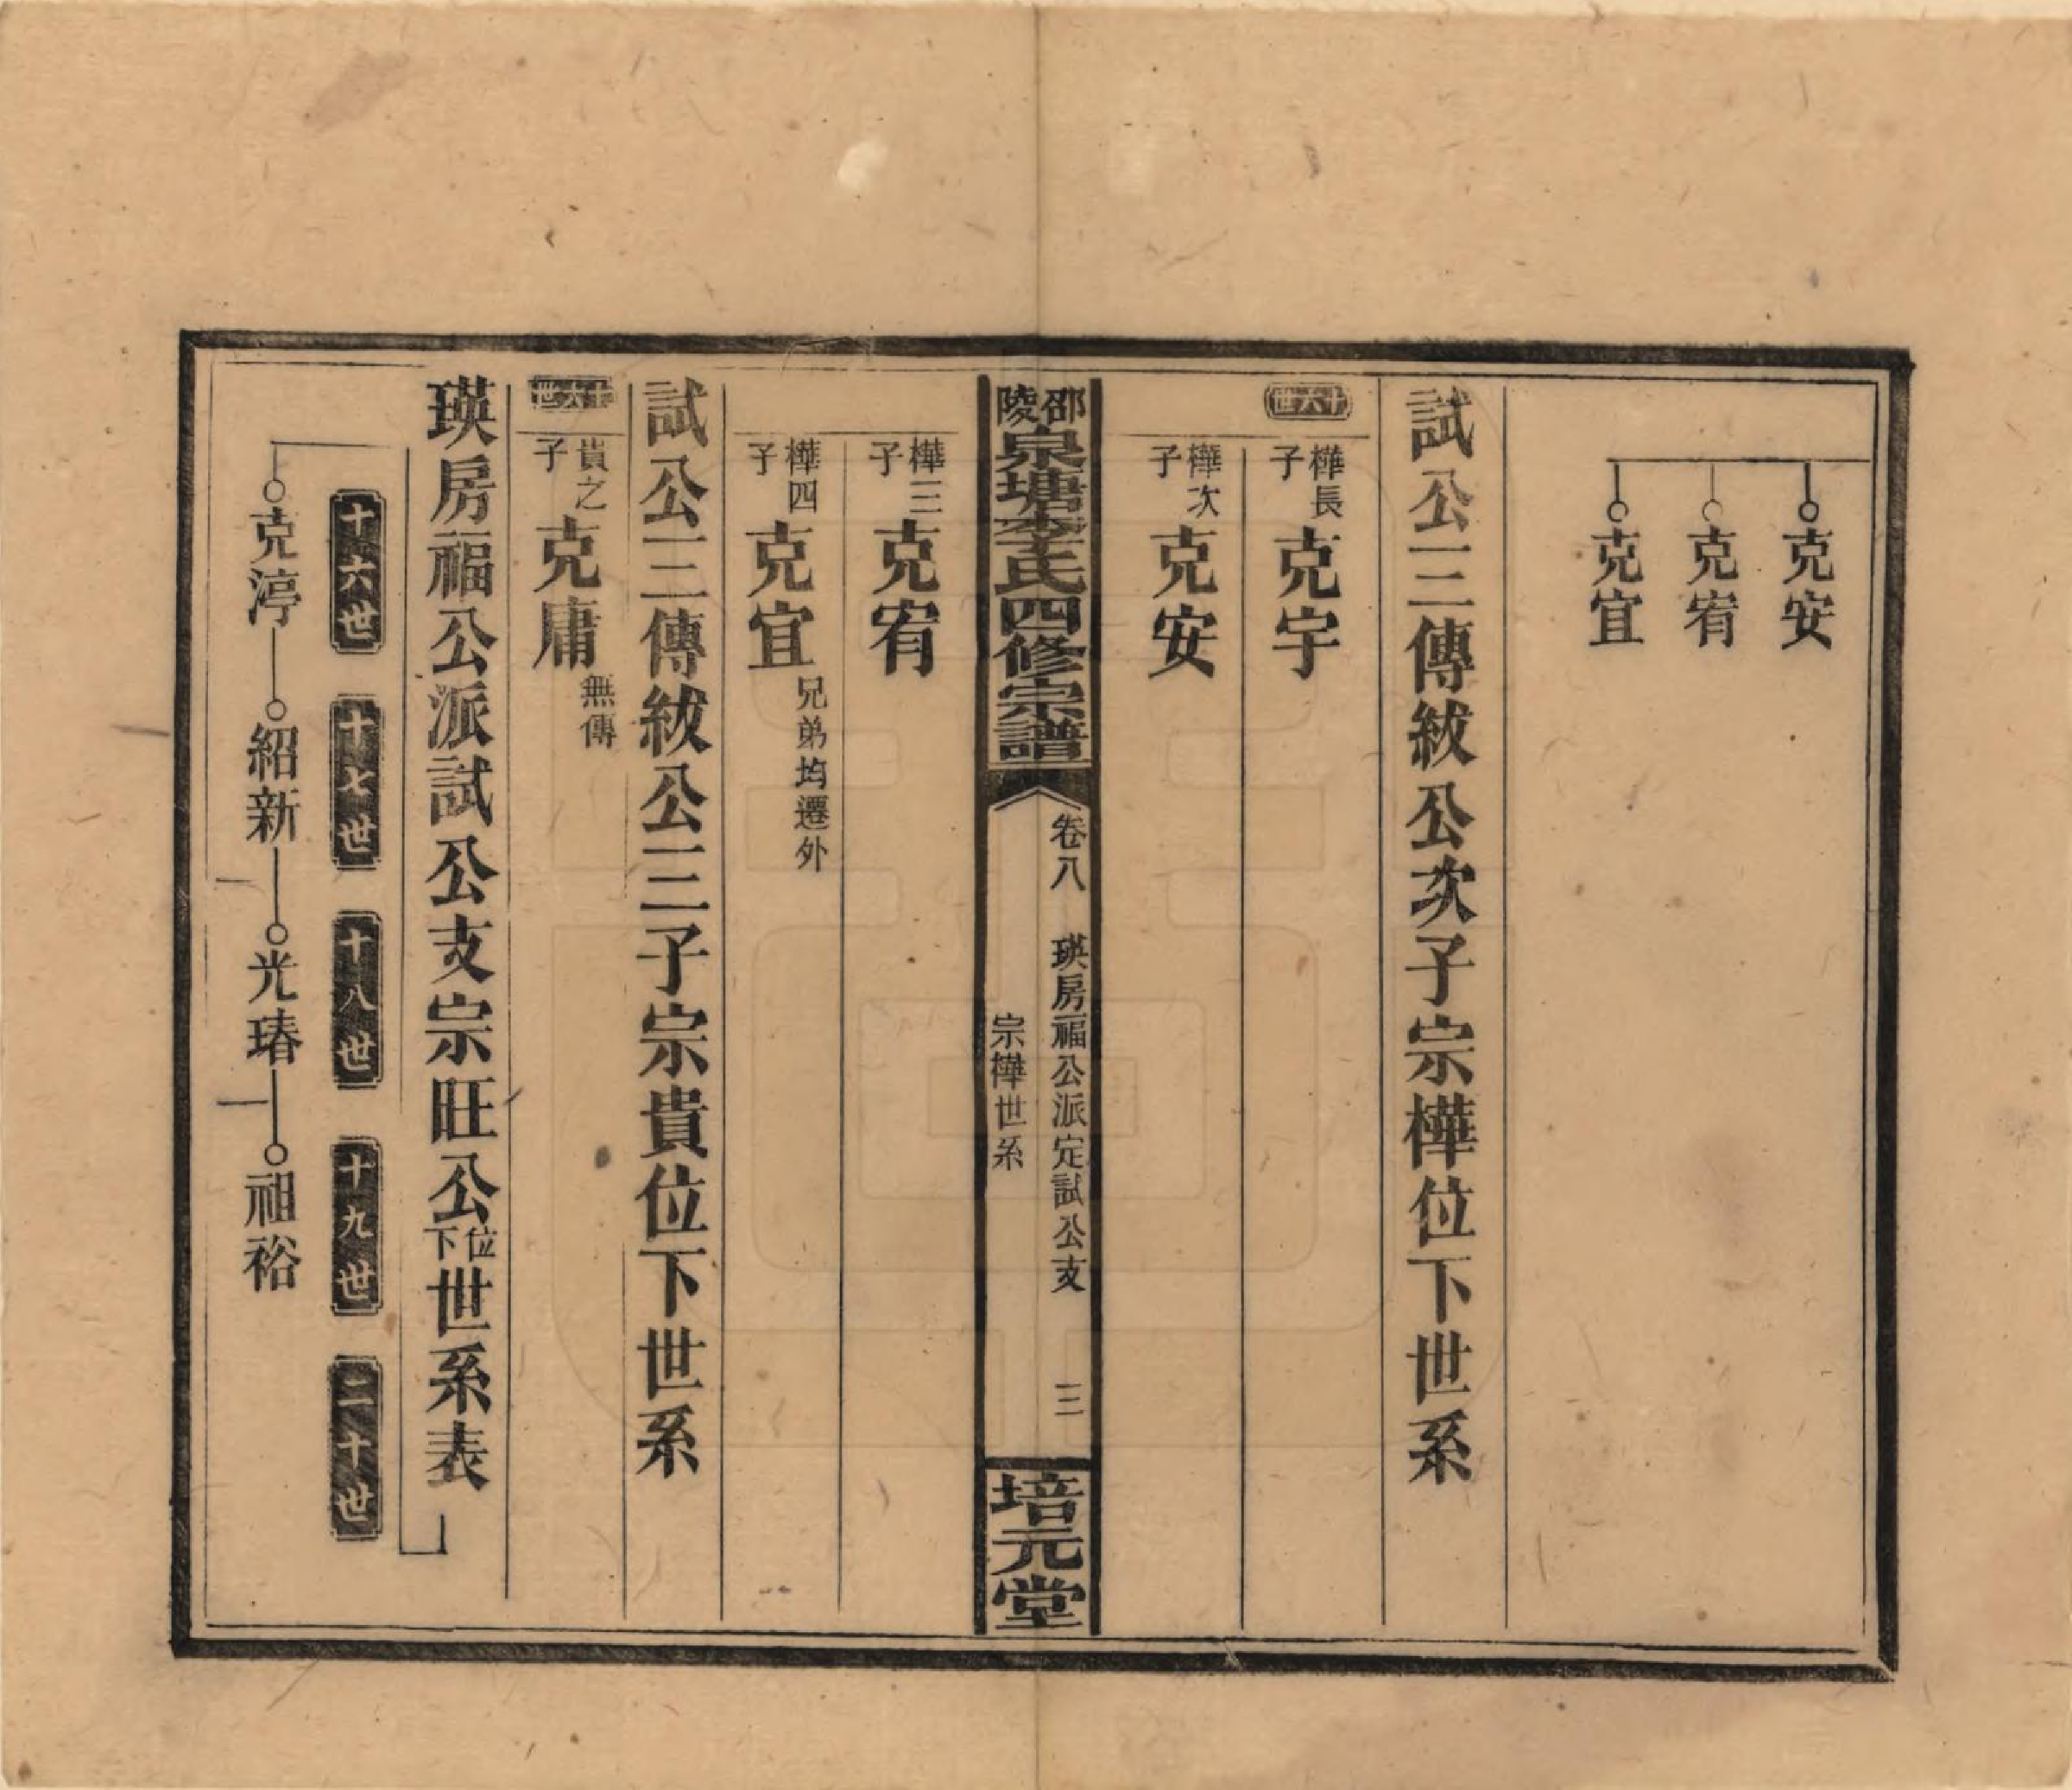 克安
克宥
克宜
試公三傳紱公次子宗樺位下世系
十六世
樺長子 克宇
樺次子 克安
邵陵泉塘李氏四修宗譜
卷八 瑛房福公派定試公支
宗樺世系
三
培元堂
樺三子 克宥
樺四子 克宜 兄弟均遷外
試公三傳紱公三子宗貴位下世系
十六世
貴之子 克庸 無傳
瑛房福公派試公支宗旺公位下世系表
十六世 十七世 十八世 十九世 二十世
克渟 紹新 光瑃 祖裕